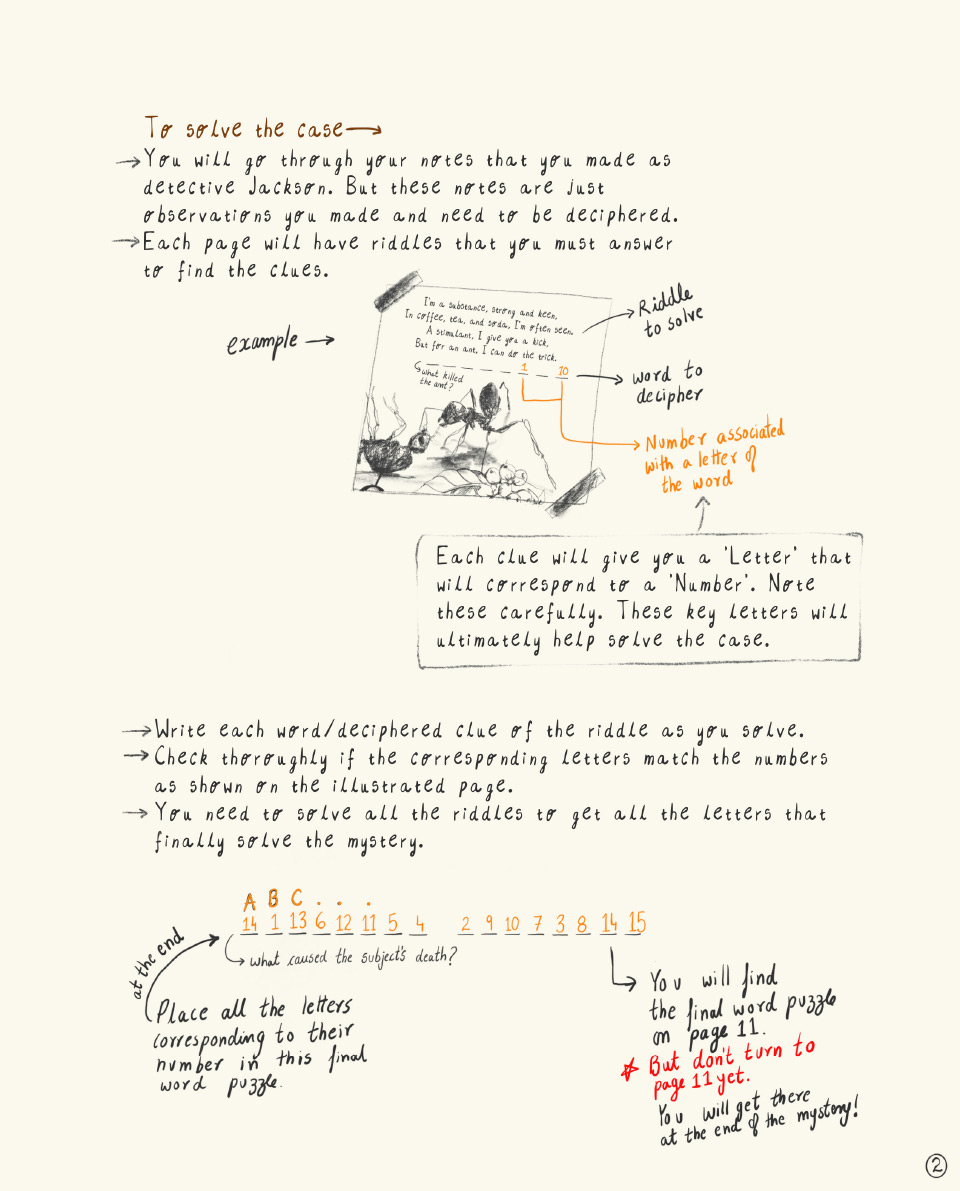 To solve the case
You will go through your notes that you made as
detective Jackson. But these notes are just
observations you made and need to be deciphered.
Each page will have riddles that you must answer
to find the clues.
example
I'm a substance, strong and keen,
In coffee, tea, and soda, I'm often seen.
A stimulant, I give you a kick,
But for an ant, I can do the trick.
1 10
what killed
the ant?
Riddle
to solve
word to
decipher
Number associated
with a letter of
the word
Each clue will give you a 'Letter' that
will correspond to a 'Number'. Note
these carefully. These key letters will
ultimately help solve the case.
Write each word/deciphered clue of the riddle as you solve.
Check thoroughly if the corresponding letters match the numbers
as shown on the illustrated page.
You need to solve all the riddles to get all the letters that
finally solve the mystery.
A B C . . .
14 1 13 6 12 11 5 4 2 9 10 7 3 8 14 15
what caused the subject's death?
at the end
Place all the letters
corresponding to their
number in this final
word puzzle.
You will find
the final word puzzle
on page 11.
* But don't turn to
page 11 yet.
You will get there
at the end of the mystery!
2